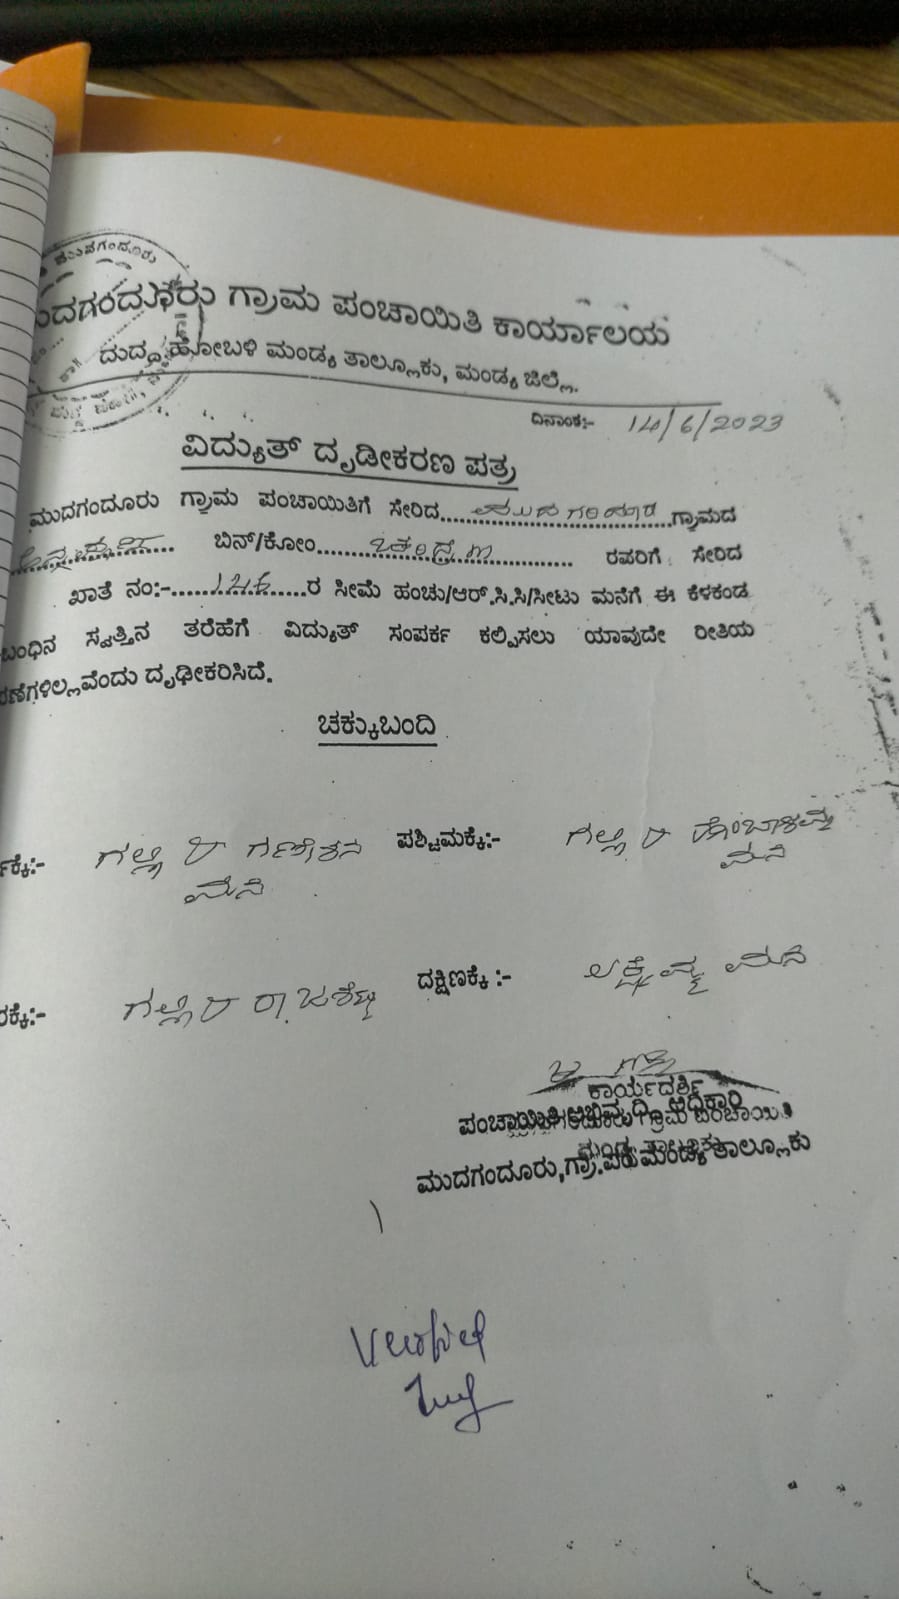 ಮುದಗಂದೂರು
ಮುದಗಂದೂರು ಗ್ರಾಮ ಪಂಚಾಯಿತಿ ಕಾರ್ಯಾಲಯ
ದುದ್ದ ಹೋಬಳಿ ಮಂಡ್ಯ ತಾಲ್ಲೂಕು, ಮಂಡ್ಯ ಜಿಲ್ಲೆ.
ದಿನಾಂಕ:- 14/6/2023
ವಿದ್ಯುತ್ ದೃಡೀಕರಣ ಪತ್ರ
ಮುದಗಂದೂರು ಗ್ರಾಮ ಪಂಚಾಯಿತಿಗೆ ಸೇರಿದ ಮುದಗಂದೂರು ಗ್ರಾಮದ
ಬಿನ್/ಕೋಂ ರವರಿಗೆ ಸೇರಿದ
ಖಾತೆ ನಂ:- 126 ರ ಸೀಮೆ ಹಂಚು/ಆರ್.ಸಿ.ಸಿ/ಸೀಟು ಮನೆಗೆ ಈ ಕೆಳಕಂಡ
ಬಂಧಿನ ಸ್ವತ್ತಿನ ತರೆಹೆಗೆ ವಿದ್ಯುತ್ ಸಂಪರ್ಕ ಕಲ್ಪಿಸಲು ಯಾವುದೇ ರೀತಿಯ
ರಣೆಗಳಿಲ್ಲವೆಂದು ದೃಢೀಕರಿಸಿದೆ.
ಚಕ್ಕುಬಂದಿ
ರ್ವಕ್ಕೆ:- ಗಲ್ಲಿ ರ ಗಣೇಶನ ಪಶ್ಚಿಮಕ್ಕೆ:- ಗಲ್ಲಿ ರ
ಮನೆ ಮನೆ
ರಕ್ಕೆ:- ಗಲ್ಲಿ ರ ರಾಜಶೆಟ್ಟಿ ದಕ್ಷಿಣಕ್ಕೆ :- ಲಕ್ಷ್ಮಮ್ಮ ಮನೆ
ಕಾರ್ಯದರ್ಶಿ
ಪಂಚಾಯಿತಿ ಅಭಿವೃದ್ಧಿ ಅಧಿಕಾರಿ
ಗ್ರಾಮ ಪಂಚಾಯಿತಿ
ಮುದಗಂದೂರು, ಗ್ರಾ.ಪಂ ಮಂಡ್ಯ ತಾಲ್ಲೂಕು
Verified